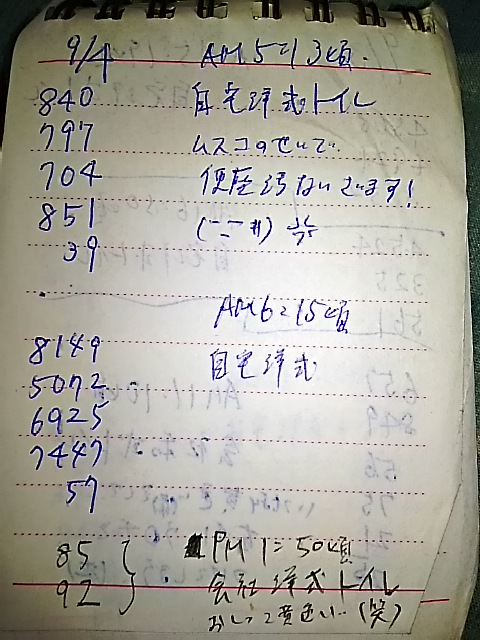 9/4 AM5:13頃.
840 自宅洋式トイレ
797 ムスコのせいで..
704 便座汚ないざます!
851
39
AM6:15頃
8149 自宅洋式
5072
6925
7447
57
85 PM1:50頃
92 会社洋式トイレ
おしっこ黄色い..(笑)